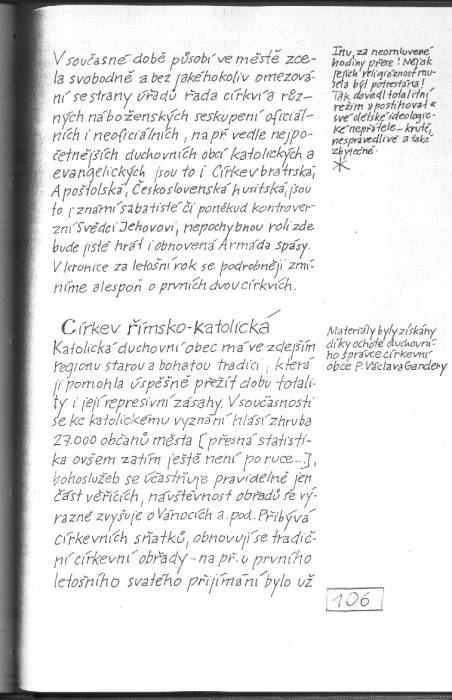 V současné době působí ve městě zce-
la svobodně a bez jakéhokoliv omezová-
ní se strany úřadů řada církví a růz-
ných náboženských seskupení oficiál-
ních i neoficiálních, na př. vedle nejpo-
četnějších duchovních obcí katolických a
evangelických jsou to i Církev bratrská,
Apoštolská, Československá husitská, jsou
to i známí sabatisté či poněkud kontrover-
zní Svědci Jehovovi, nepochybnou roli zde
bude jistě hrát i obnovená Armáda spásy.
V kronice za letošní rok se podrobněji zmí-
níme alespoň o prvních dvou církvích.
Církev římsko-katolická
Katolická duchovní obec má ve zdejším
regionu starou a bohatou tradici, která
jí pomohla úspěšně přežít dobu totali-
ty i její represivní zásahy. V současnosti
se ke katolickému vyznání hlásí zhruba
27.000 občanů města [přesná statisti-
ka ovšem zatím ještě není po ruce...],
bohoslužeb se účastňuje pravidelně jen
část věřících, návštěvnost obřadů se vý-
razně zvyšuje o Vánocích a. pod. Přibývá
církevních sňatků, obnovují se tradič-
ní církevní obřady - na př. u prvního
letošního svatého přijímání bylo už
tnu, za neomluvené
hodiny přece! Nějak
jejich religióznost mu-
sela být potrestána!
Tak dovedl totalitní
režim »postihovat«
své dětské ideologic-
ké nepřátele - krutě,
nespravedlivě a také
zbytečně.
Materiály byly získány
díky ochotě duchovní-
ho správce církevní
obce P. Václava Gandery
106